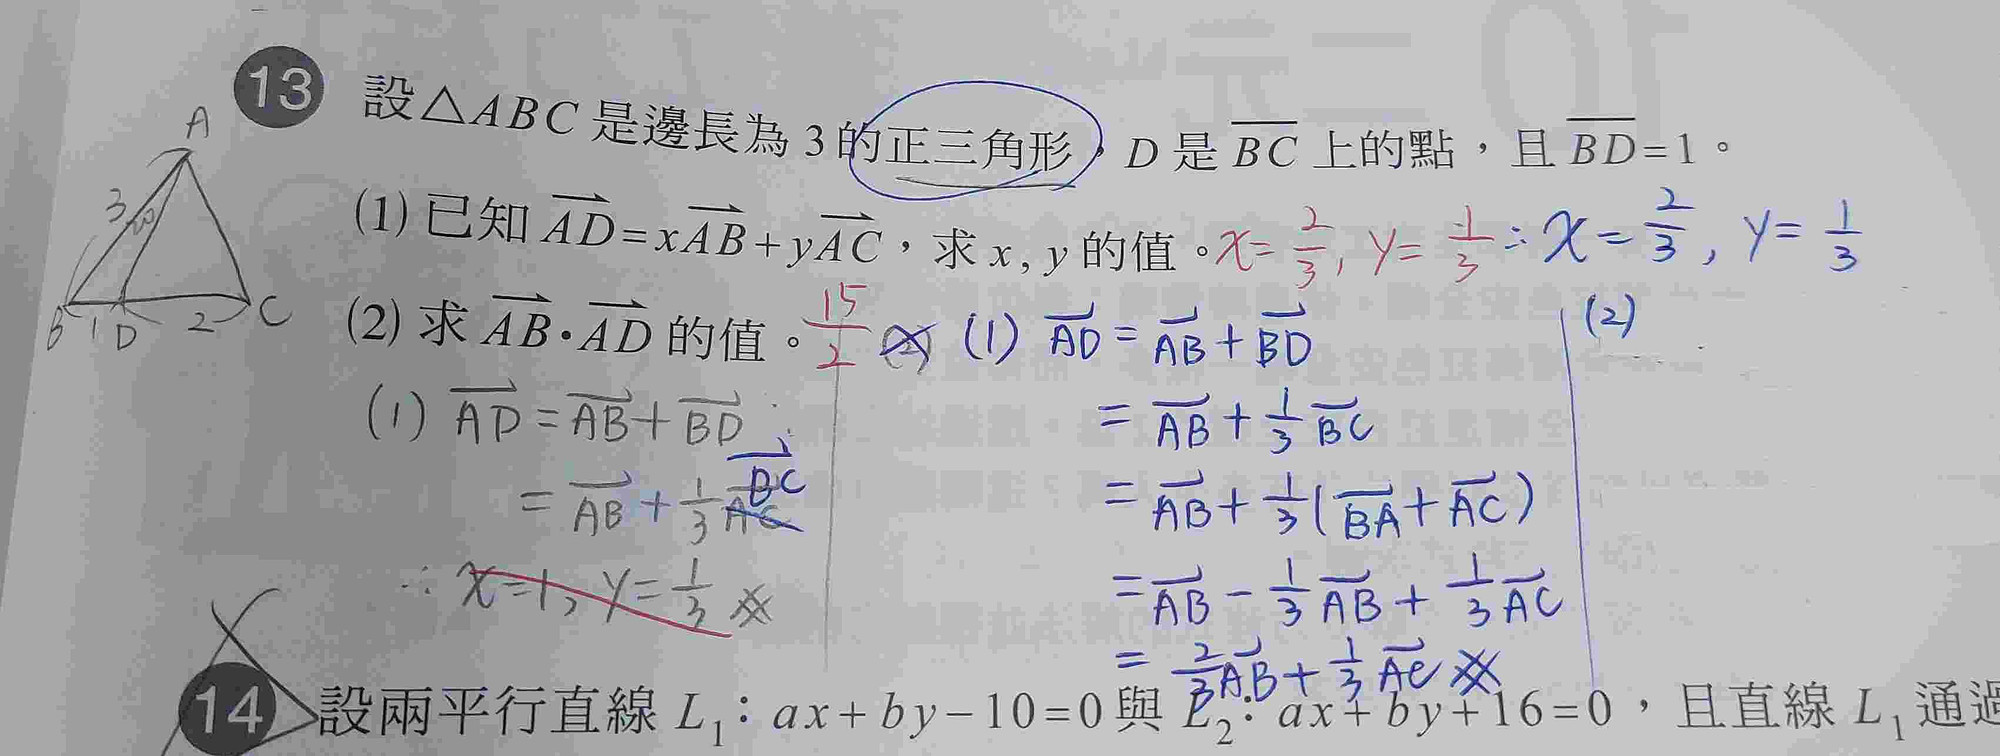 13 設△ABC 是邊長為 3 的正三角形，D 是 BC 上的點，且 BD=1。
(1) 已知 AD=xAB+yAC，求 x, y 的值。x=2/3, y=1/3 ∴ x=2/3, y=1/3
(2) 求 AB·AD 的值。15/2
A
3
B 1 D 2 C
(1) AD=AB+BD
=AB+1/3 BC
∴ x=1, y=1/3
(1) AD=AB+BD
=AB+1/3 BC
=AB+1/3(BA+AC)
=AB-1/3 AB+1/3 AC
=2/3 AB+1/3 AC
(2)
14 設兩平行直線 L1：ax+by-10=0 與 L2：ax+by+16=0，且直線 L1 通過